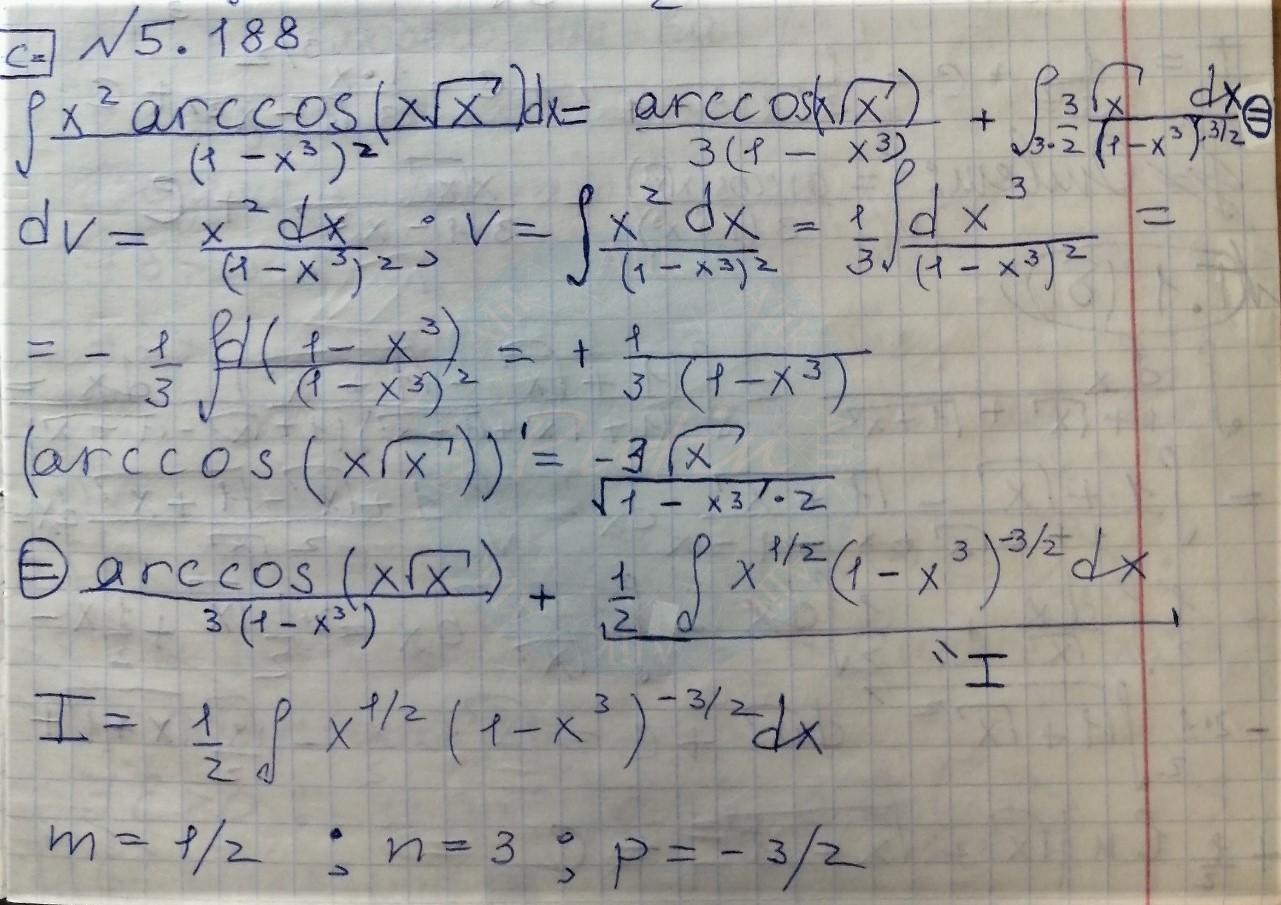 C= №5.188
∫ x² arccos(x√x)dx / (1-x³)² = arccos(x√x) / 3(1-x³) + ∫ 3√x dx / 3·2 (1-x³)^3/2 ⊜
dv = x² dx / (1-x³)² ; v = ∫ x² dx / (1-x³)² = 1/3 ∫ dx³ / (1-x³)² =
= - 1/3 ∫ d(1-x³) / (1-x³)² = + 1 / 3 (1-x³)
(arccos(x√x))' = -3√x / √(1-x³)·2
⊜ arccos(x√x) / 3(1-x³) + 1/2 ∫ x^1/2 (1-x³)^-3/2 dx
"I
I = 1/2 ∫ x^1/2 (1-x³)^-3/2 dx
m = 1/2 ; n = 3 ; p = -3/2